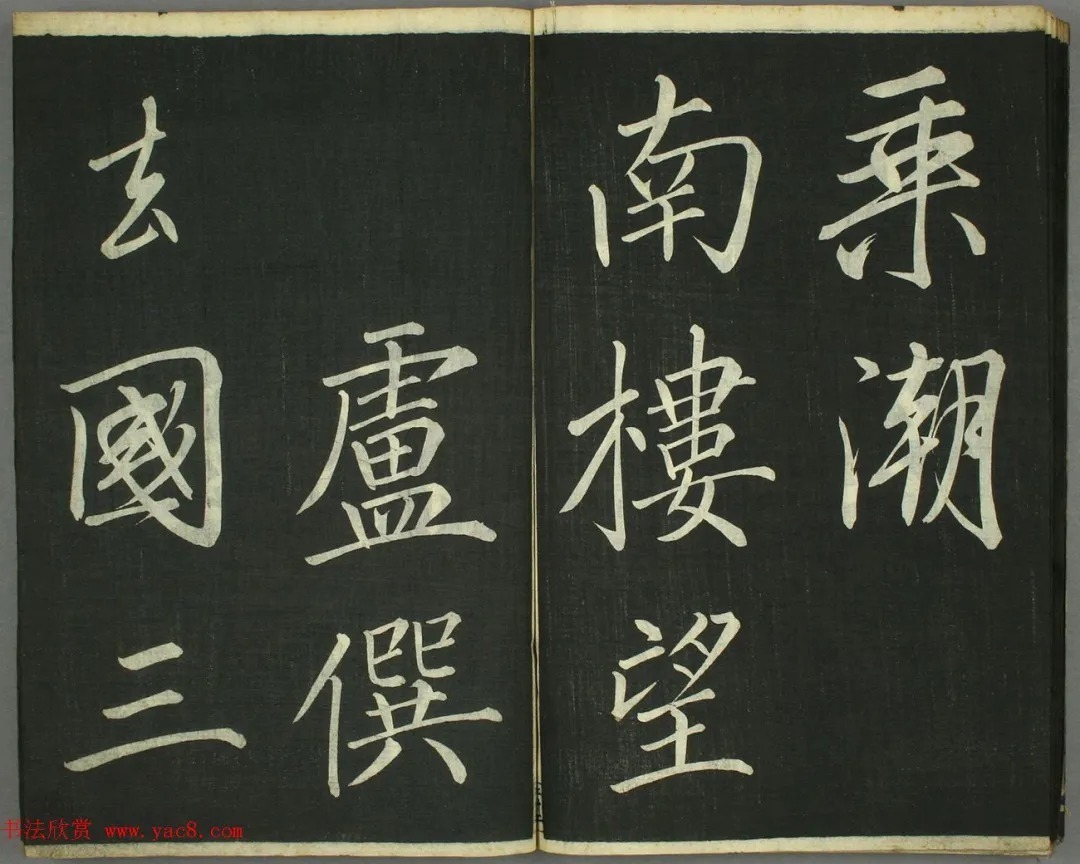 乘潮
南樓望
盧僎
去國三
书法欣赏 www.yac8.com